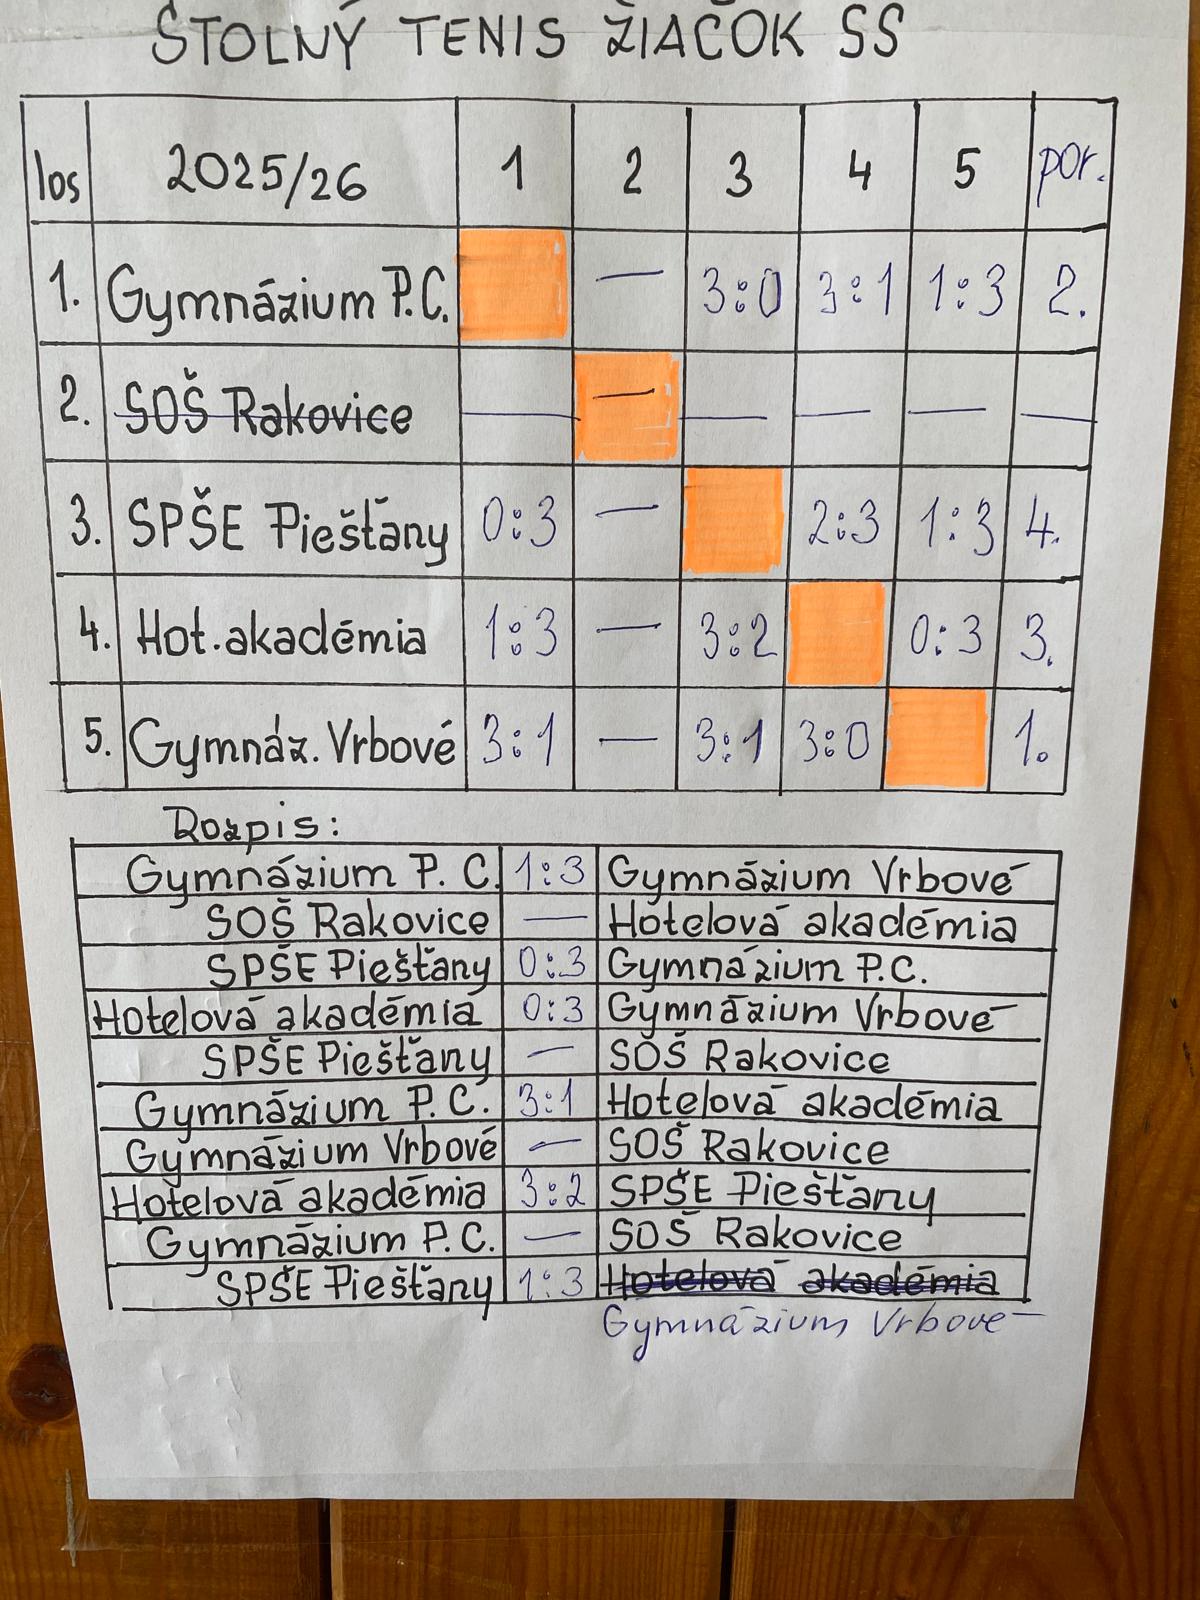 STOLNÝ TENIS ŽIAČOK SŠ
los 2025/26 1 2 3 4 5 por.
1. Gymnázium P.C. — 3:0 3:1 1:3 2.
2. SOŠ Rakovice — — — — — —
3. SPŠE Piešťany 0:3 — 2:3 1:3 4.
4. Hot.akadémia 1:3 — 3:2 0:3 3.
5. Gymnáz. Vrbové 3:1 — 3:1 3:0 1.
Rozpis:
Gymnázium P. C. 1:3 Gymnázium Vrbové
SOŠ Rakovice — Hotelová akadémia
SPŠE Piešťany 0:3 Gymnázium P.C.
Hotelová akadémia 0:3 Gymnázium Vrbové
SPŠE Piešťany — SOŠ Rakovice
Gymnázium P. C. 3:1 Hotelová akadémia
Gymnázium Vrbové — SOŠ Rakovice
Hotelová akadémia 3:2 SPŠE Piešťany
Gymnázium P.C. — SOŠ Rakovice
SPŠE Piešťany 1:3 Hotelová akadémia
Gymnázium Vrbové